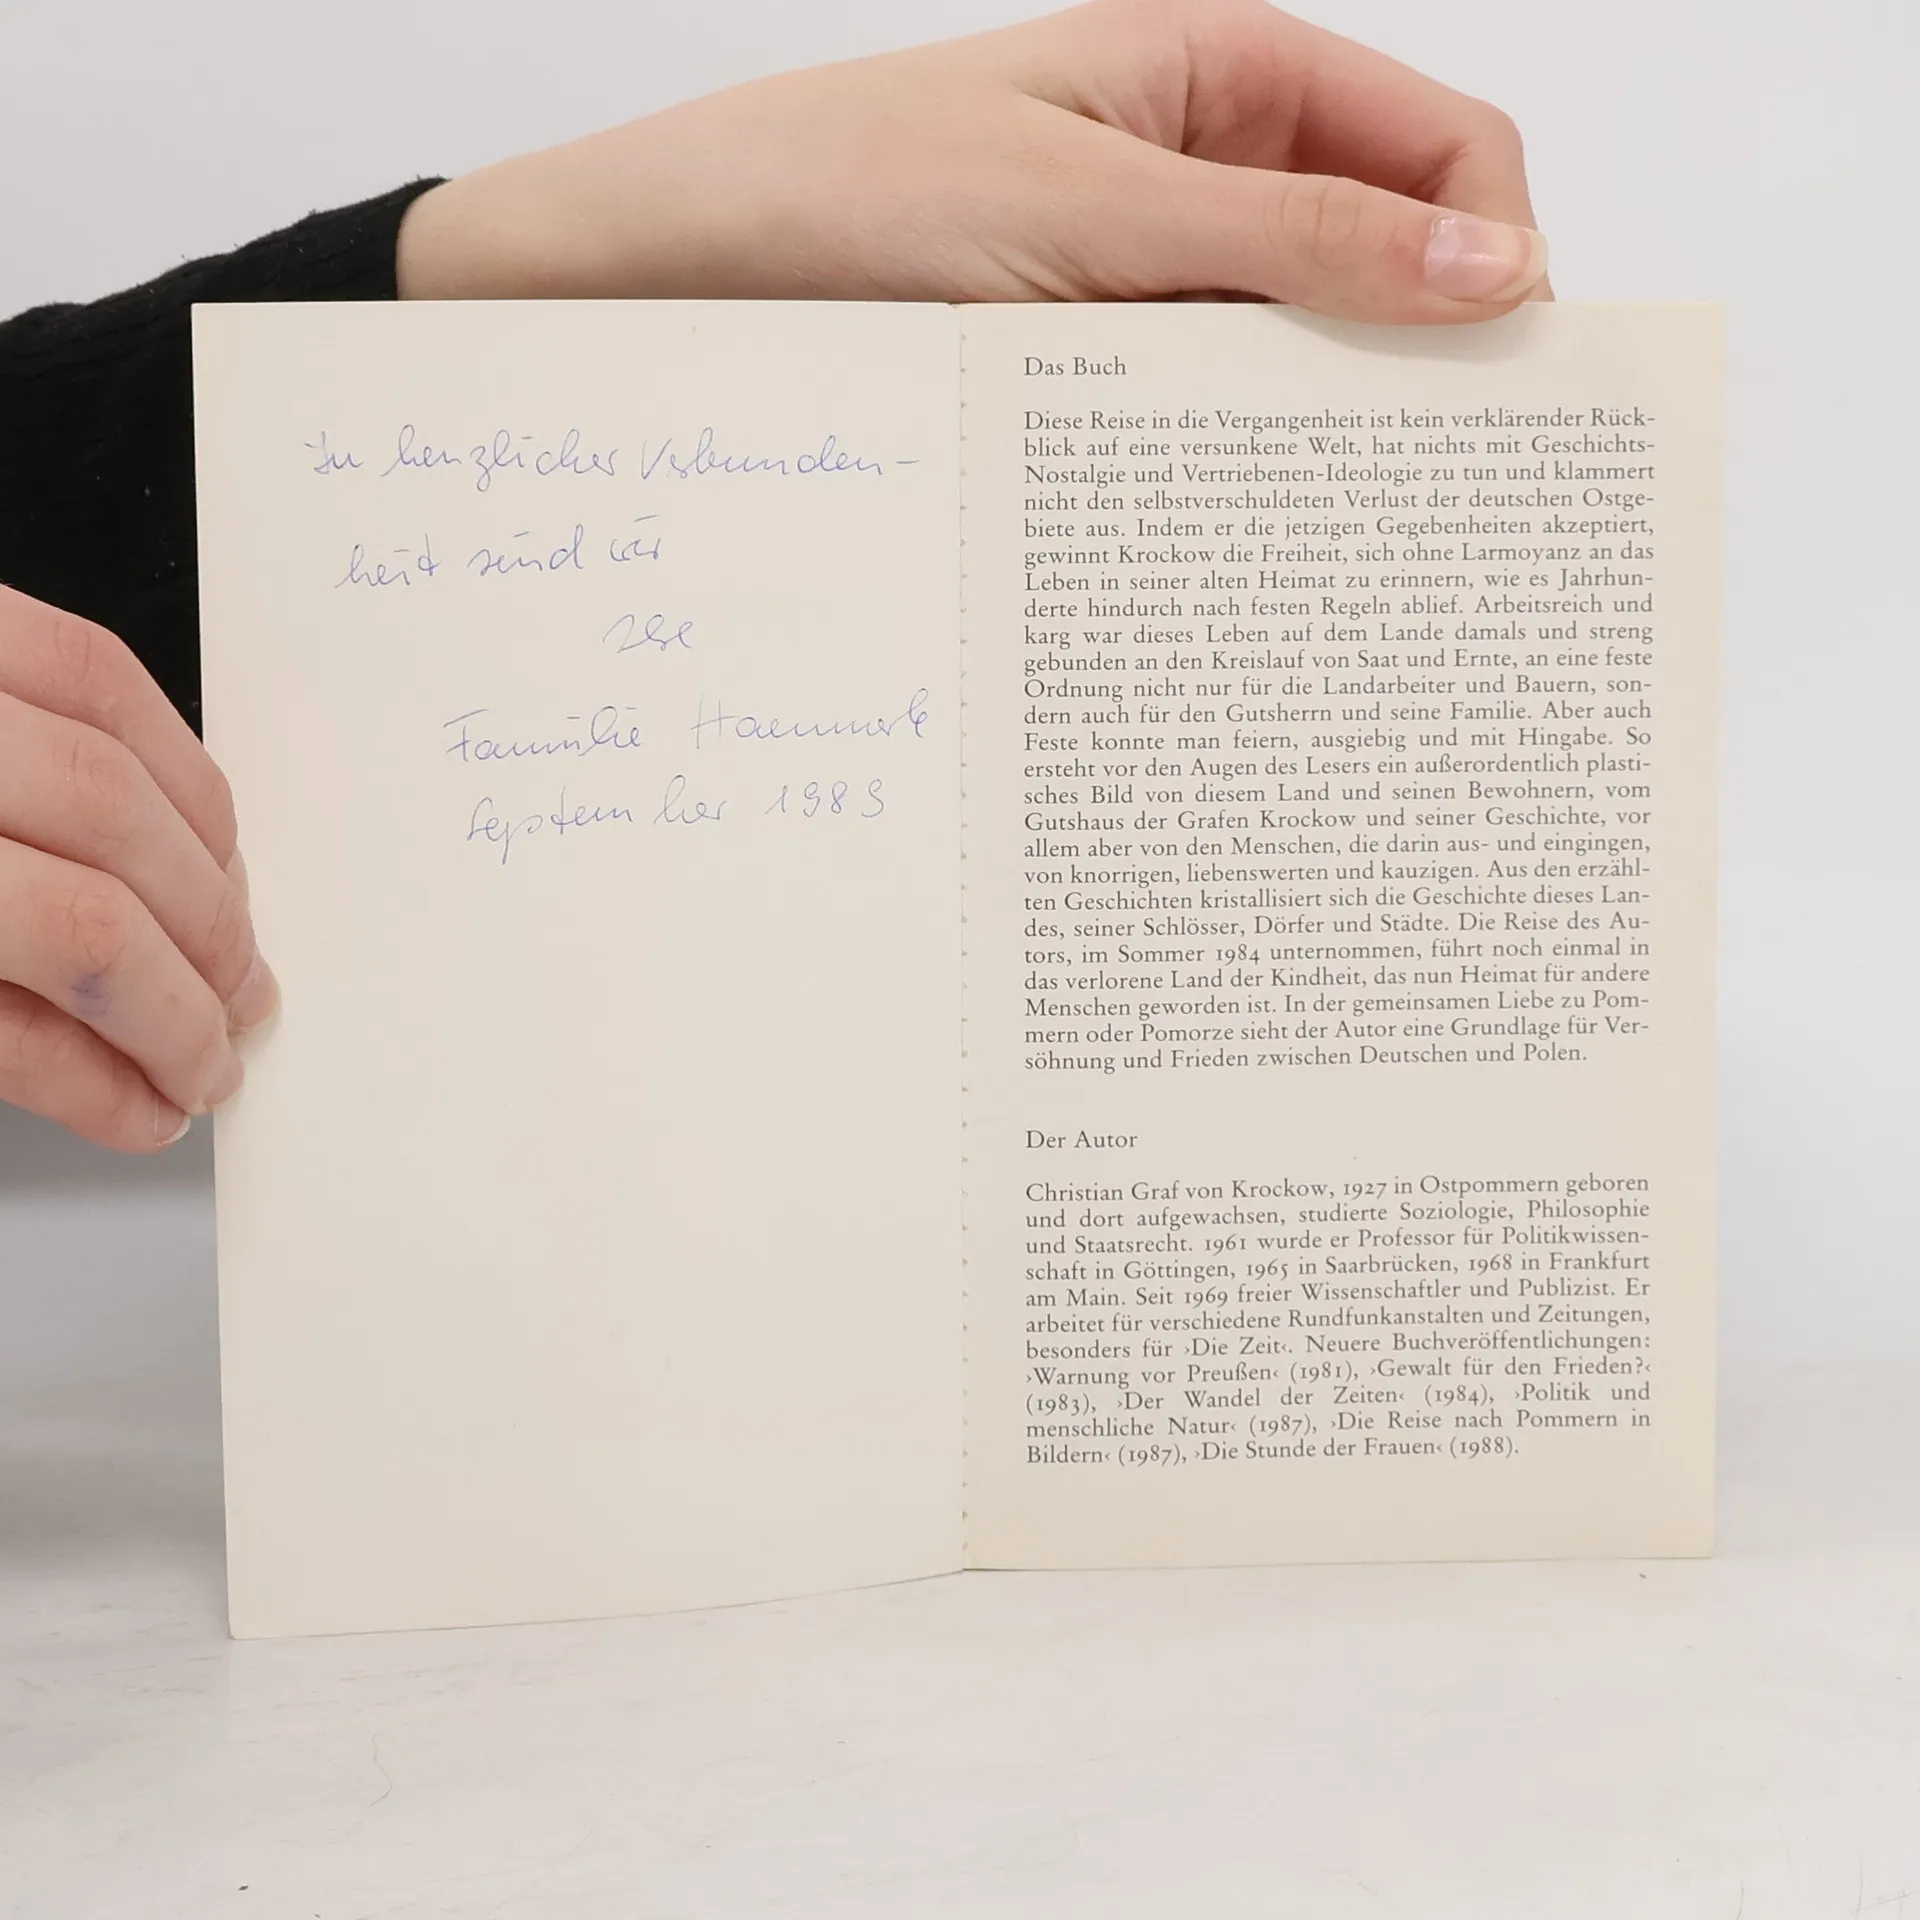 In herzlicher Verbunden-
heit sind wir
Familie
September 1989
Das Buch
Diese Reise in die Vergangenheit ist kein verklärender Rück-
blick auf eine versunkene Welt, hat nichts mit Geschichts-
Nostalgie und Vertriebenen-Ideologie zu tun und klammert
nicht den selbstverschuldeten Verlust der deutschen Ostge-
biete aus. Indem er die jetzigen Gegebenheiten akzeptiert,
gewinnt Krockow die Freiheit, sich ohne Larmoyanz an das
Leben in seiner alten Heimat zu erinnern, wie es Jahrhun-
derte hindurch nach festen Regeln ablief. Arbeitsreich und
karg war dieses Leben auf dem Lande damals und streng
gebunden an den Kreislauf von Saat und Ernte, an eine feste
Ordnung nicht nur für die Landarbeiter und Bauern, son-
dern auch für den Gutsherrn und seine Familie. Aber auch
Feste konnte man feiern, ausgiebig und mit Hingabe. So
ersteht vor den Augen des Lesers ein außerordentlich plasti-
sches Bild von diesem Land und seinen Bewohnern, vom
Gutshaus der Grafen Krockow und seiner Geschichte, vor
allem aber von den Menschen, die darin aus- und eingingen,
von knorrigen, liebenswerten und kauzigen. Aus den erzähl-
ten Geschichten kristallisiert sich die Geschichte dieses Lan-
des, seiner Schlösser, Dörfer und Städte. Die Reise des Au-
tors, im Sommer 1984 unternommen, führt noch einmal in
das verlorene Land der Kindheit, das nun Heimat für andere
Menschen geworden ist. In der gemeinsamen Liebe zu Pom-
mern oder Pomorze sieht der Autor eine Grundlage für Ver-
söhnung und Frieden zwischen Deutschen und Polen.
Der Autor
Christian Graf von Krockow, 1927 in Ostpommern geboren
und dort aufgewachsen, studierte Soziologie, Philosophie
und Staatsrecht. 1961 wurde er Professor für Politikwissen-
schaft in Göttingen, 1965 in Saarbrücken, 1968 in Frankfurt
am Main. Seit 1969 freier Wissenschaftler und Publizist. Er
arbeitet für verschiedene Rundfunkanstalten und Zeitungen,
besonders für ›Die Zeit‹. Neuere Buchveröffentlichungen:
›Warnung vor Preußen‹ (1981), ›Gewalt für den Frieden?‹
(1983), ›Der Wandel der Zeiten‹ (1984), ›Politik und
menschliche Natur‹ (1987), ›Die Reise nach Pommern in
Bildern‹ (1987), ›Die Stunde der Frauen‹ (1988).